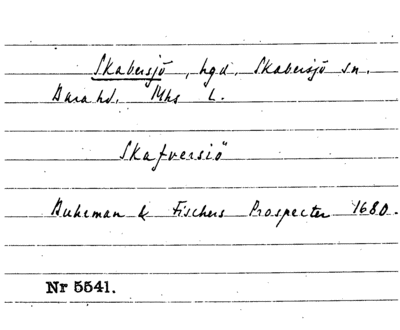 Skabersjö, hgd. Skabersjö sn.
Bara hd. Mhs L.
Skafversiö
Buhrman & Fischers Prospecter 1680.
Nr 5541.